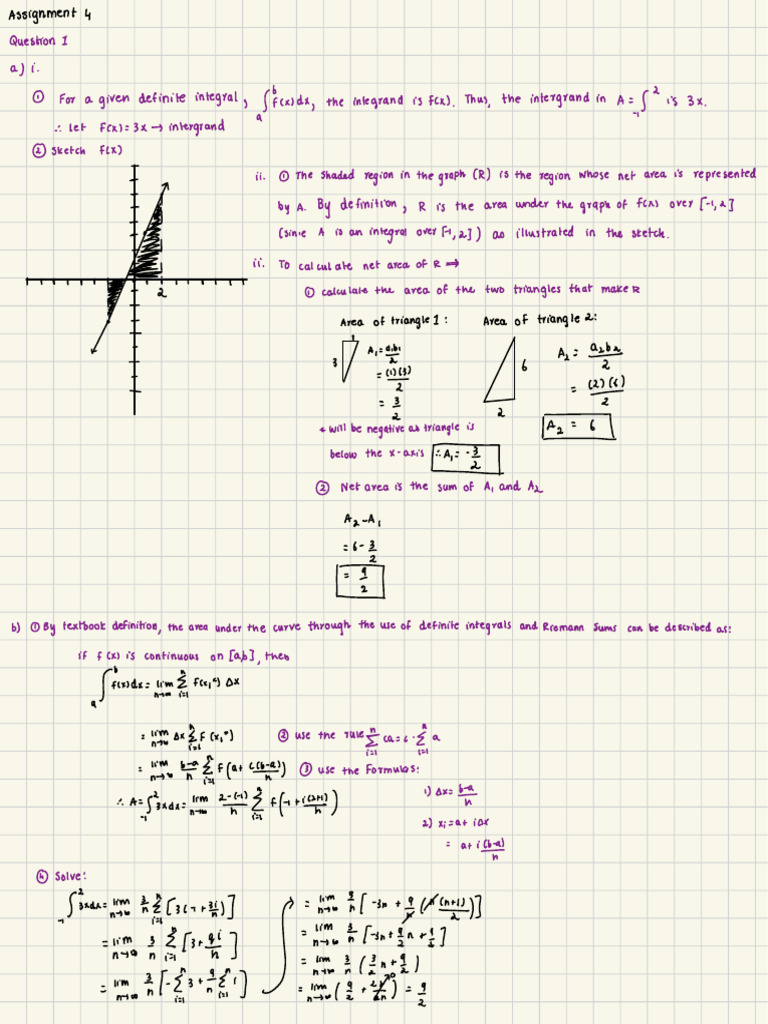 Assignment 4
Question 1
a) i.
① For a given definite integral, ∫_a^b f(x)dx, the integrand is f(x). Thus, the intergrand in A = ∫_-1^2 is 3x.
∴ let f(x) = 3x → intergrand
② Sketch f(x)
2
ii. ① The shaded region in the graph (R) is the region whose net area is represented
by A. By definition, R is the area under the graph of f(x) over [-1,2]
(since A is an integral over [-1,2]) as illustrated in the sketch.
ii. To calculate net area of R ⟹
① calculate the area of the two triangles that make R
Area of triangle 1:
1
3
A₁ = a₁b₁/2
= (1)(3)/2
= 3/2
* will be negative as triangle is
below the x-axis ∴ A₁ = -3/2
Area of triangle 2:
6
2
A₂ = a₂b₂/2
= (2)(6)/2
A₂ = 6
② Net area is the sum of A₁ and A₂
A₂ - A₁
= 6 - 3/2
= 9/2
b) ① By textbook definition, the area under the curve through the use of definite integrals and Riemann Sums can be described as:
if f(x) is continuous on [a,b], then
∫_a^b f(x)dx = lim_{n→∞} Σ_{i=1}^n f(x_i*) Δx
= lim_{n→∞} Δx Σ_{i=1}^n f(x_i*)
② use the rule Σ_{i=1}^n ca = c · Σ_{i=1}^n a
= lim_{n→∞} b-a/n Σ_{i=1}^n f(a + i(b-a)/n)
③ use the Formulas:
1) Δx = b-a/n
2) x_i = a + iΔx
= a + i(b-a)/n
∴ A = ∫_-1^2 3xdx = lim_{n→∞} 2-(-1)/n Σ_{i=1}^n f(-1 + i(2+1)/n)
④ Solve:
∫_-1^2 3xdx = lim_{n→∞} 3/n Σ_{i=1}^n [3(-1 + 3i/n)]
= lim_{n→∞} 3/n Σ_{i=1}^n [3 + 9i/n]
= lim_{n→∞} 3/n [-Σ_{i=1}^n 3 + 9/n Σ_{i=1}^n i]
= lim_{n→∞} 3/n [-3n + 9/n (n(n+1)/2)]
= lim_{n→∞} 3/n [-3n + 9/2 n + 9/2]
= lim_{n→∞} 3/n (3/2 n + 9/2)
= lim_{n→∞} (9/2 + 27/2n) = 9/2